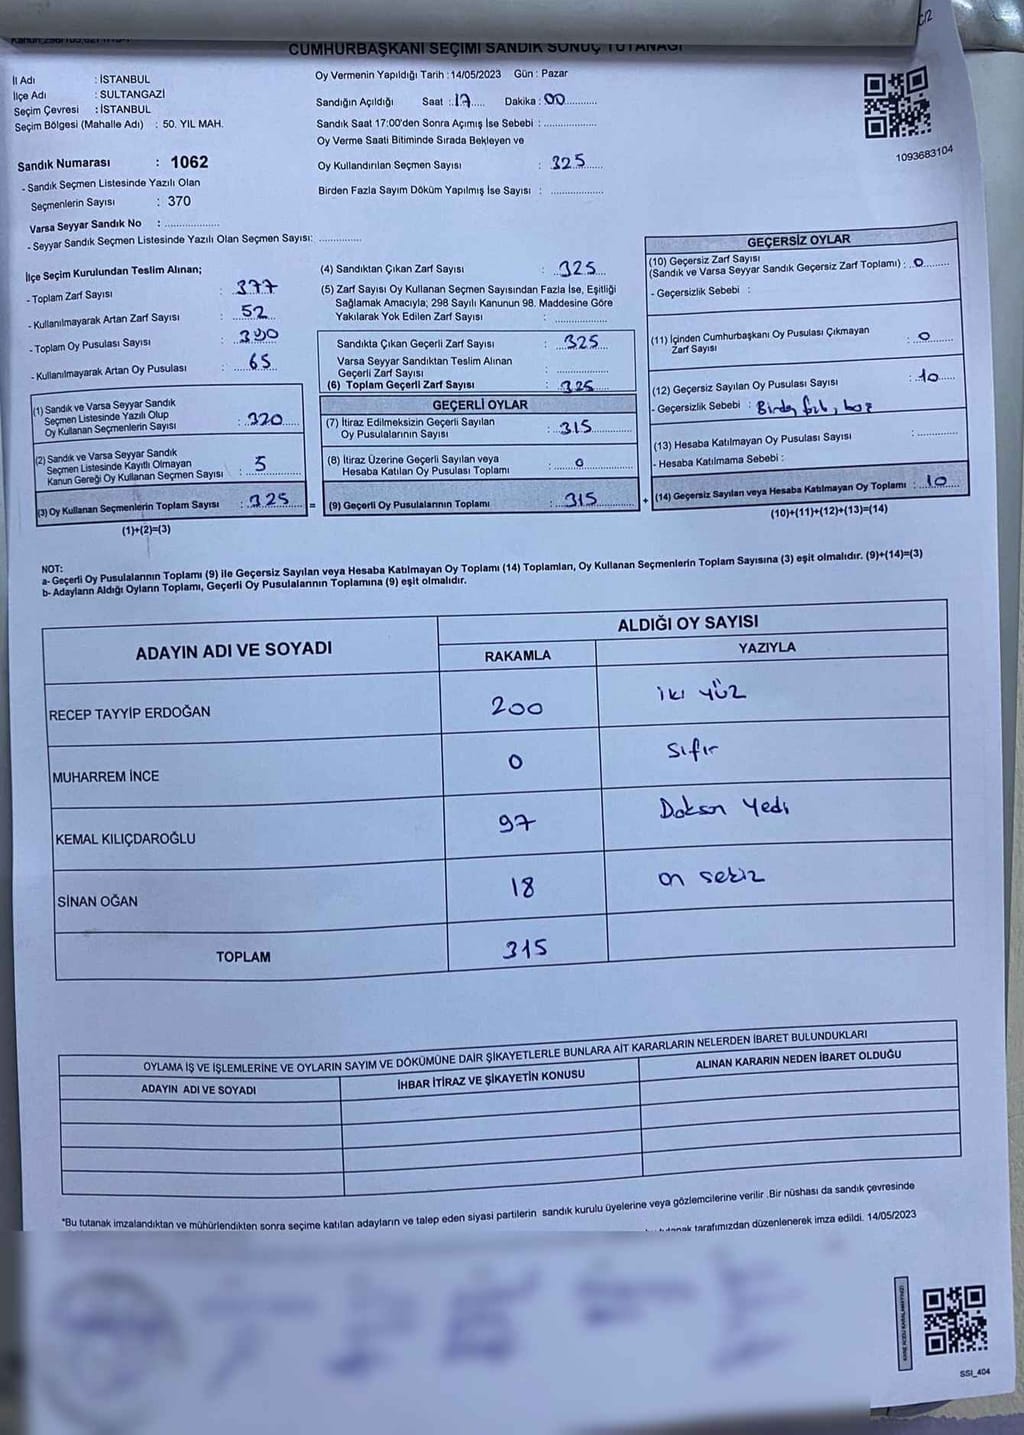 CUMHURBAŞKANI SEÇİMİ SANDIK SONUÇ TUTANAĞI
İl Adı : İSTANBUL
İlçe Adı : SULTANGAZİ
Seçim Çevresi : İSTANBUL
Seçim Bölgesi (Mahalle Adı) : 50. YIL MAH.
Sandık Numarası : 1062
- Sandık Seçmen Listesinde Yazılı Olan
Seçmenlerin Sayısı : 370
Varsa Seyyar Sandık No : ..................
- Seyyar Sandık Seçmen Listesinde Yazılı Olan Seçmen Sayısı: ..............
Oy Vermenin Yapıldığı Tarih : 14/05/2023 Gün : Pazar
Sandığın Açıldığı Saat : 17 Dakika : 00
Sandık Saat 17:00'den Sonra Açımış İse Sebebi : ..................
Oy Verme Saati Bitiminde Sırada Bekleyen ve
Oy Kullandırılan Seçmen Sayısı : 325
Birden Fazla Sayım Döküm Yapılmış İse Sayısı : ..................
1093683104
İlçe Seçim Kurulundan Teslim Alınan;
- Toplam Zarf Sayısı : 377
- Kullanılmayarak Artan Zarf Sayısı : 52
- Toplam Oy Pusulası Sayısı :
- Kullanılmayarak Artan Oy Pusulası : 65
(1) Sandık ve Varsa Seyyar Sandık
Seçmen Listesinde Yazılı Olup
Oy Kullanan Seçmenlerin Sayısı : 320
(2) Sandık ve Varsa Seyyar Sandık
Seçmen Listesinde Kayıtlı Olmayan
Kanun Gereği Oy Kullanan Seçmen Sayısı : 5
(3) Oy Kullanan Seçmenlerin Toplam Sayısı : 325 =
(1)+(2)=(3)
(4) Sandıktan Çıkan Zarf Sayısı : 325
(5) Zarf Sayısı Oy Kullanan Seçmen Sayısından Fazla İse, Eşitliği
Sağlamak Amacıyla; 298 Sayılı Kanunun 98. Maddesine Göre
Yakılarak Yok Edilen Zarf Sayısı : ..................
Sandıkta Çıkan Geçerli Zarf Sayısı : 325
Varsa Seyyar Sandıktan Teslim Alınan
Geçerli Zarf Sayısı : ..................
(6) Toplam Geçerli Zarf Sayısı : 325
GEÇERLİ OYLAR
(7) İtiraz Edilmeksizin Geçerli Sayılan
Oy Pusulalarının Sayısı : 315
(8) İtiraz Üzerine Geçerli Sayılan veya
Hesaba Katılan Oy Pusulası Toplamı : 0
(9) Geçerli Oy Pusulalarının Toplamı : 315 +
GEÇERSİZ OYLAR
(10) Geçersiz Zarf Sayısı
(Sandık ve Varsa Seyyar Sandık Geçersiz Zarf Toplamı) : 0
- Geçersizlik Sebebi :
(11) İçinden Cumhurbaşkanı Oy Pusulası Çıkmayan
Zarf Sayısı : 0
(12) Geçersiz Sayılan Oy Pusulası Sayısı : 10
- Geçersizlik Sebebi : Birden fazla, boş
(13) Hesaba Katılmayan Oy Pusulası Sayısı : ..............
- Hesaba Katılmama Sebebi :
(14) Geçersiz Sayılan veya Hesaba Katılmayan Oy Toplamı : 10
(10)+(11)+(12)+(13)=(14)
NOT:
a- Geçerli Oy Pusulalarının Toplamı (9) ile Geçersiz Sayılan veya Hesaba Katılmayan Oy Toplamı (14) Toplamları, Oy Kullanan Seçmenlerin Toplam Sayısına (3) eşit olmalıdır. (9)+(14)=(3)
b- Adayların Aldığı Oyların Toplamı, Geçerli Oy Pusulalarının Toplamına (9) eşit olmalıdır.
ADAYIN ADI VE SOYADI ALDIĞI OY SAYISI
RAKAMLA YAZIYLA
RECEP TAYYİP ERDOĞAN 200 iki yüz
MUHARREM İNCE 0 Sıfır
KEMAL KILIÇDAROĞLU 97 Doksan Yedi
SİNAN OĞAN 18 on sekiz
TOPLAM 315
OYLAMA İŞ VE İŞLEMLERİNE VE OYLARIN SAYIM VE DÖKÜMÜNE DAİR ŞİKAYETLERLE BUNLARA AİT KARARLARIN NELERDEN İBARET BULUNDUKLARI
ADAYIN ADI VE SOYADI İHBAR İTİRAZ VE ŞİKAYETİN KONUSU ALINAN KARARIN NEDEN İBARET OLDUĞU
*Bu tutanak imzalandıktan ve mühürlendikten sonra seçime katılan adayların ve talep eden siyasi partilerin sandık kurulu üyelerine veya gözlemcilerine verilir .Bir nüshası da sandık çevresinde
tutanak tarafımızdan düzenlenerek imza edildi. 14/05/2023
SSI_404